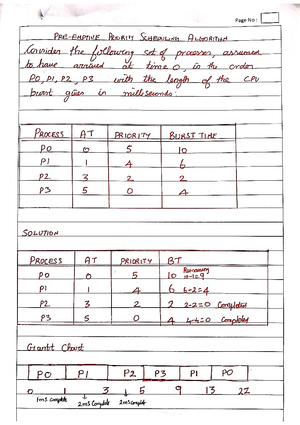 Page No :
PRE-EMPTIVE PRIORITY SCHEDULING ALGORITHM
Consider the following set of processes, assumed
to have arrived at time 0, in the order
P0, P1, P2, P3 with the length of the CPU
burst given in milliseconds:
PROCESS AT PRIORITY BURST TIME
P0 0 5 10
P1 1 4 6
P2 3 2 2
P3 5 0 4
SOLUTION
PROCESS AT PRIORITY BT
P0 0 5 10 Remaining 10-1=9
P1 1 4 6 6-2=4
P2 3 2 2 2-2=0 Completed
P3 5 0 4 4-4=0 Completed
Grantt Chart
P0 P1 P2 P3 P1 P0
0 1 3 5 9 13 22
1ms complete 2ms complete 2ms complete